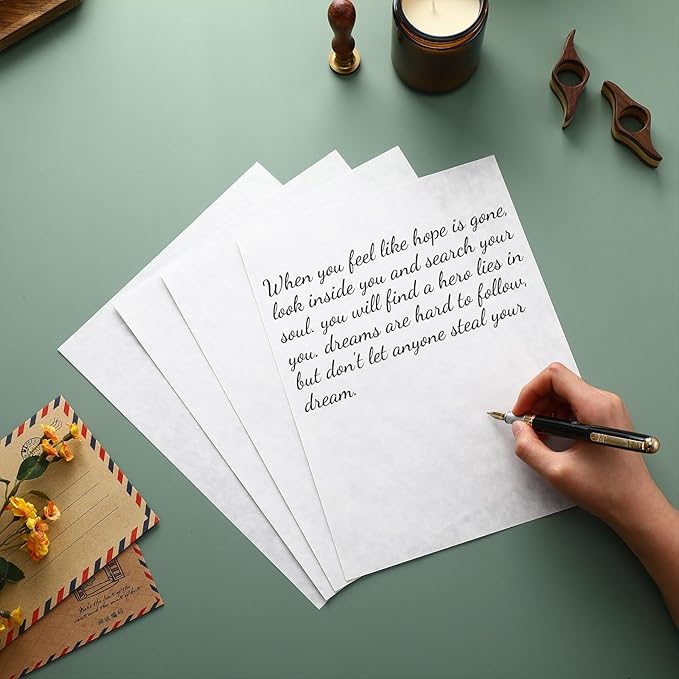 When you feel like hope is gone,
look inside you and search your
soul. you will find a hero lies in
you. dreams are hard to follow,
but don't let anyone steal your
dream.